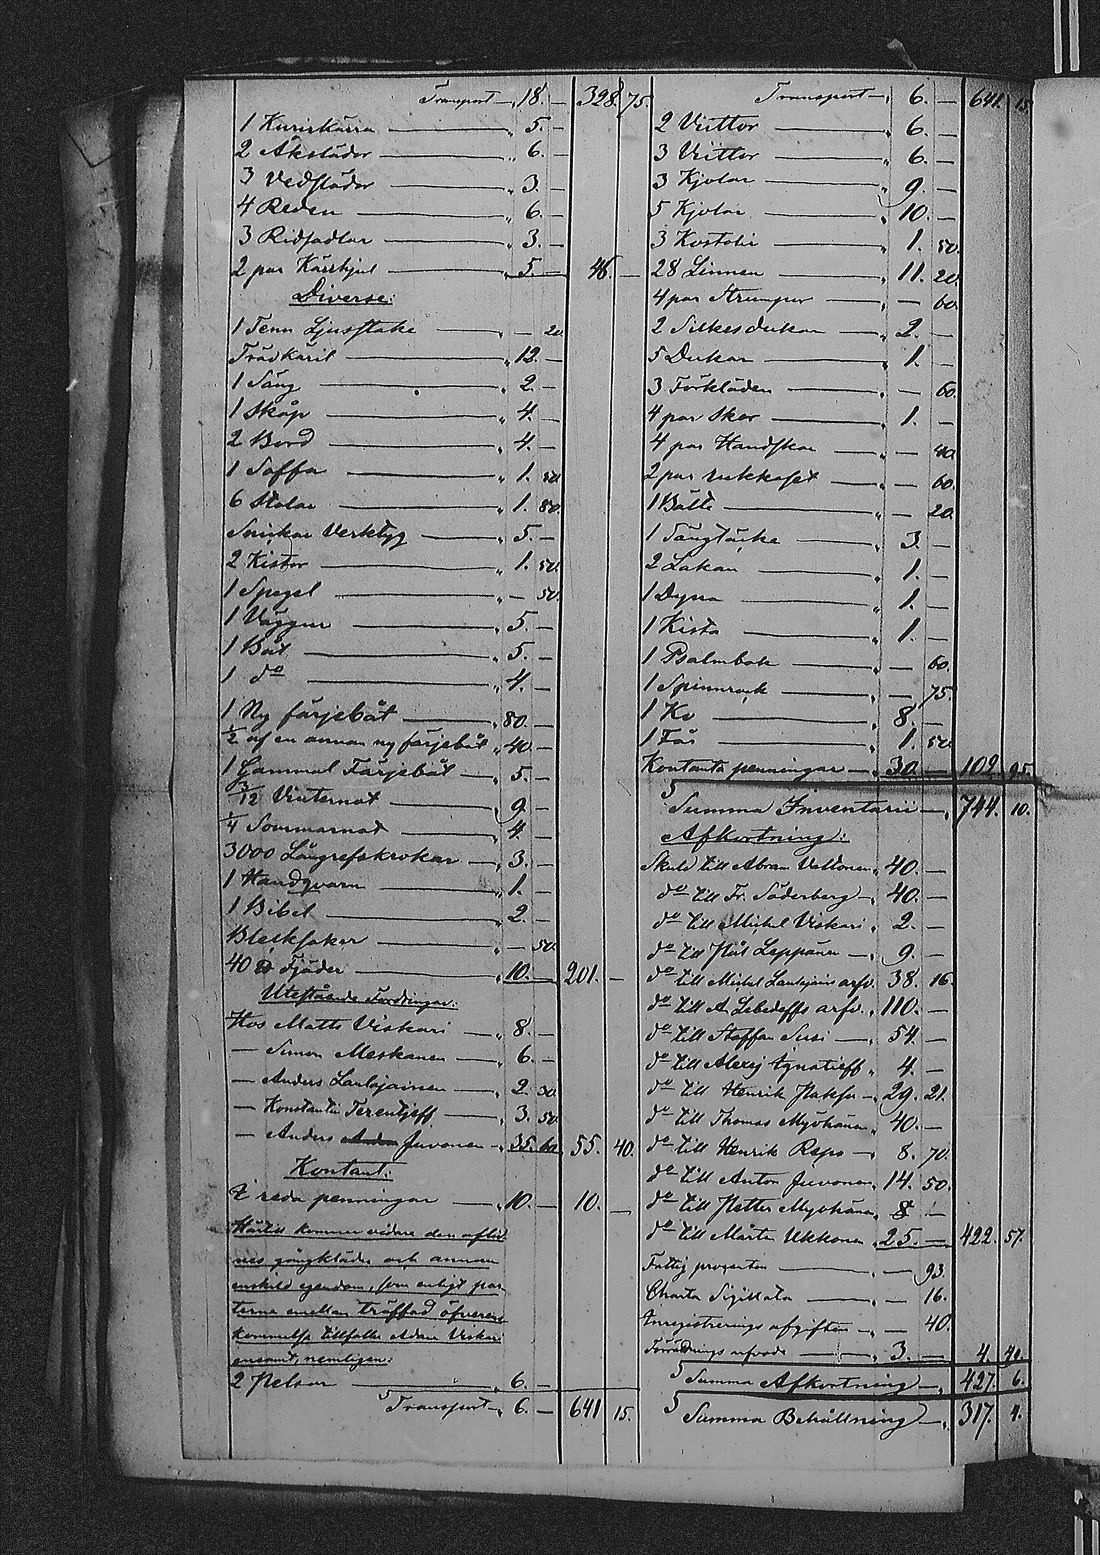 Transport 18. — 328. 75.
1 Kurirkärra " 5. —
2 Åkslädor " 6. —
3 Vedslädor " 3. —
4 Reden " 6. —
3 Ridsadlar " 3. —
2 par Kärrhjul " 5. — 46 —
Diverse:
1 Tenn Ljusstake " — 20.
Trädkäril " 12. —
1 Säng " 2. —
1 Skåp " 4. —
2 Bord " 4. —
1 Soffa " 1. 50.
6 Stolar " 1. 80.
Snickar Verktyg " 5. —
2 Kistor " 1. 50.
1 Spegel " — 50.
1 " 5. —
1 Båt " 5. —
1 do " 4. —
1 Ny färjebåt " 80. —
1/2 af en annan ny färjebåt " 40. —
1 Gammal Färjebåt " 5. —
3/12 Vinternot " 9. —
1/4 Sommarnot " 4. —
3000 Långrefskrokar " 3. —
1 Handqvarn " 1. —
1 Bibel " 2. —
Blecksaker " — 50.
40 Fjäder " 10. — 201. —
Utestående Fordringar:
Hos Matts Viskari " 8. —
— Simon Meskanen " 6. —
— Anders Laulajainen " 2. 30.
— Konstantin Terentjeff " 3. 50.
— Anders Juvonen " 35. 60. 55. 40.
Kontant:
I reda penningar " 10. — 10. —
Härtill kommer vidare den aflid
nes gångkläder och annan
enskild egendom, som enligt par
terne emellan träffad öfverens
kommelse tillfaller Adam Viskari
ensamt, nemligen:
2 Pelsar " 6. —
Transport " 6. — 641 15.
Transport " 6. — 641. 15.
2 " 6. —
3 " 6. —
3 Kjolar " 9. —
5 Kjolar " 10. —
3 " 1. 50.
28 Linnen " 11. 20.
4 par Strumpor " — 60.
2 Silkesdukar " 2. —
5 Dukar " 1. —
3 Förkläden " — 60.
4 par Skor " 1. —
4 par Handskar " — 40.
2 par " — 60.
1 Bälte " — 20.
1 Sängtäcke " 3. —
2 Lakan " 1. —
1 Dyna " 1. —
1 Kista " 1. —
1 Psalmbok " — 60.
1 Spinnrock " — 75.
1 Ko " 8. —
1 Får " 1. 50.
Kontanta penningar " 30. — 102. 95.
Summa Inventarii " 744. 10.
Afkortning:
Skuld till Abram Valtonen " 40. —
do till Fr. Söderberg " 40. —
do till Michel Viskari " 2. —
do till Leppänen " 9. —
do till Michel Laulajains arfv. 38. 16.
do till A Lebedeffs arfv. " 110. —
do till Staffan Susi " 54. —
do till Alexej Ignatieff " 4. —
do till Henrik " 29. 21.
do till Thomas Myöhänen " 40. —
do till Henrik Repo " 8. 70.
do till Anton Juvonen " 14. 50.
do till Petter Myöhänen " 8 —
do till Mårten Ukkonen " 25. — 422. 57.
Fattig procenten " — 93.
Charta Sigillata " — 16.
Inregistrerings afgiften " — 40.
Förrättnings arfvode " 3. — 4. 49.
Summa Afkortning " 427. 6.
Summa Behållning " 317. 4.